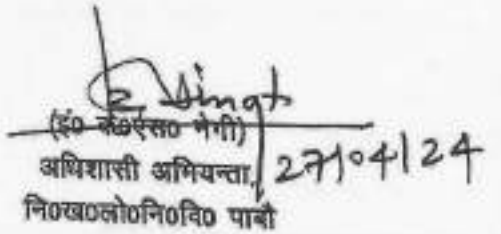 Singh
(इं० के०एस० नेगी)
अधिशासी अभियन्ता, 27/04/24
नि०ख०लो०नि०वि० पाबौ